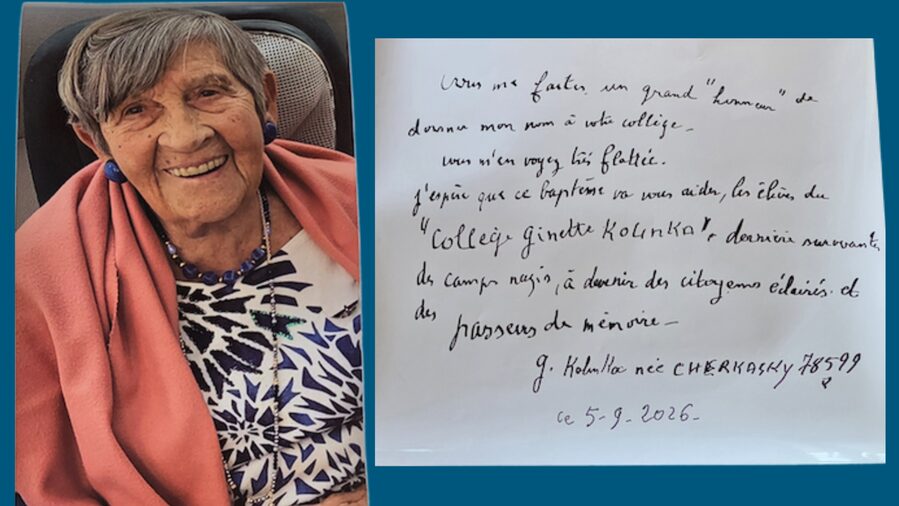 Vous me faites un grand "honneur" de
donner mon nom à votre collège.
Vous m'en voyez très flattée.
j'espère que ce baptême va vous aider, les élèves du
"Collège Ginette KOLINKA", dernière survivante
des camps nazis, à devenir des citoyens éclairés et
des
passeurs de mémoire_
G. Kolinka née CHERKASKY 78599
ce 5-9-2026-